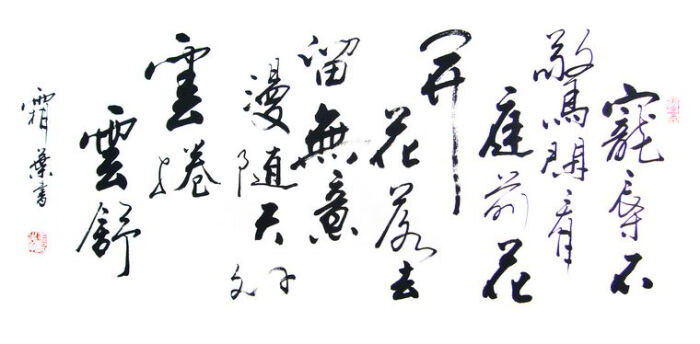 寵辱不
驚閒看
庭前花
開
花落去
留無意
漫随天外
雲捲
雲舒
霜葉書